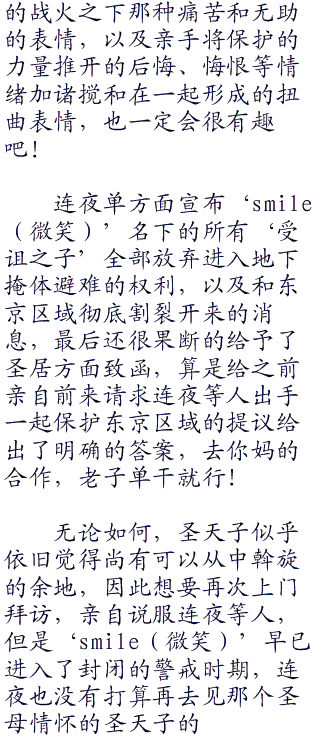 的战火之下那种痛苦和无助
的表情，以及亲手将保护的
力量推开的后悔、悔恨等情
绪加诸搅和在一起形成的扭
曲表情，也一定会很有趣
吧！
连夜单方面宣布‘smile
（微笑）’名下的所有‘受
诅之子’全部放弃进入地下
掩体避难的权利，以及和东
京区域彻底割裂开来的消
息，最后还很果断的给予了
圣居方面致函，算是给之前
亲自前来请求连夜等人出手
一起保护东京区域的提议给
出了明确的答案，去你妈的
合作，老子单干就行！
无论如何，圣天子似乎
依旧觉得尚有可以从中斡旋
的余地，因此想要再次上门
拜访，亲自说服连夜等人，
但是‘smile（微笑）’早已
进入了封闭的警戒时期，连
夜也没有打算再去见那个圣
母情怀的圣天子的